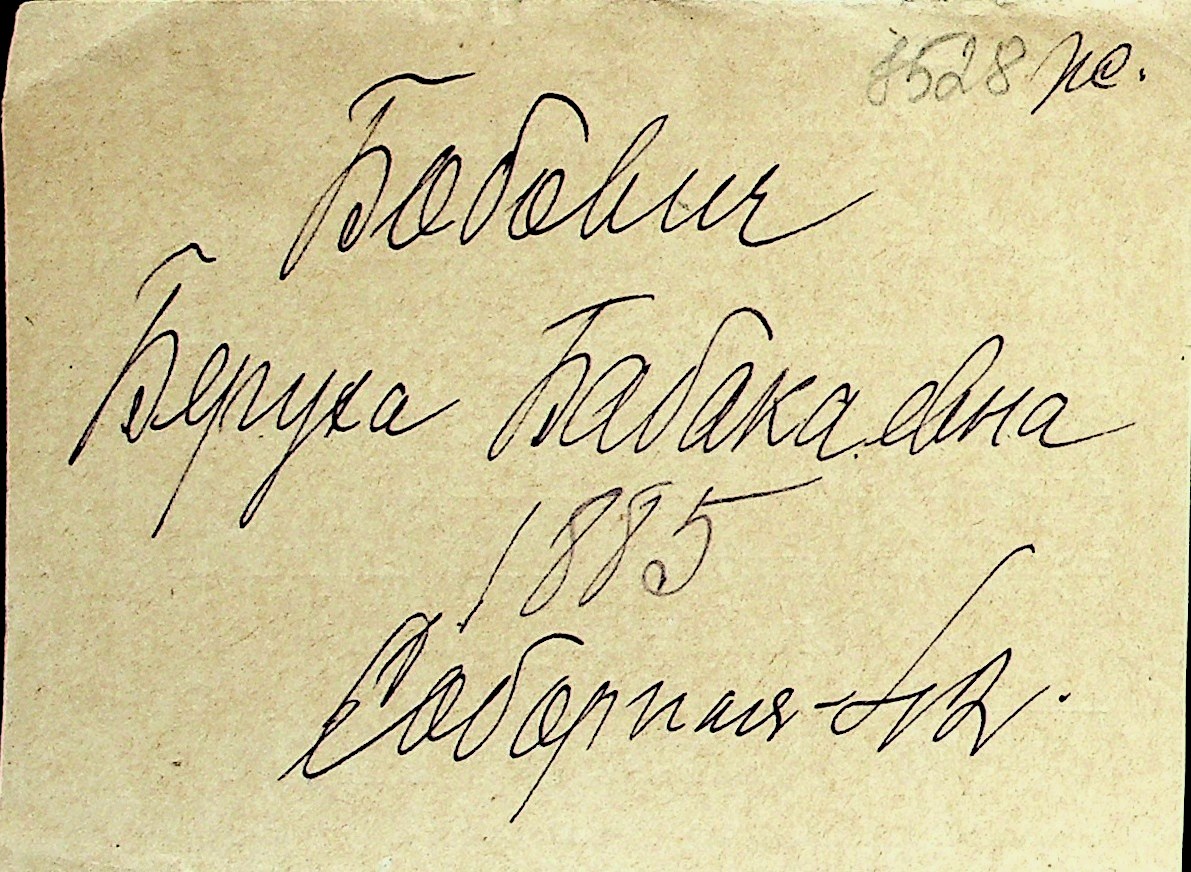 8528 пс.
Бобович
Беруха Бабакаевна
1885
Соборная